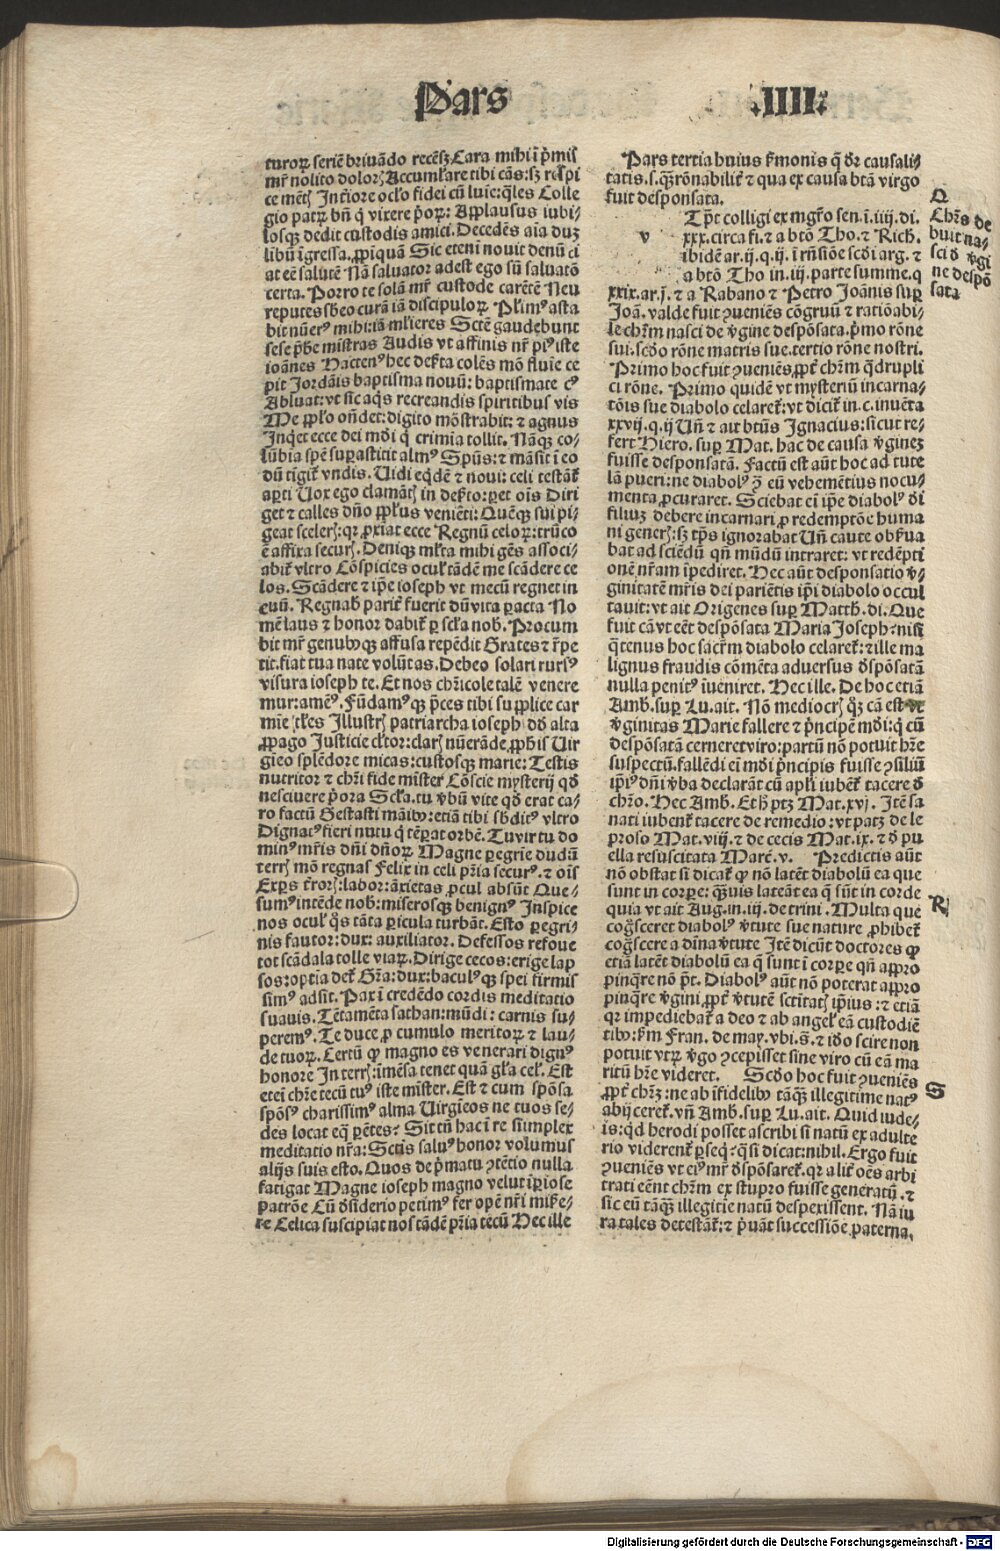 Pars .IIII.
turoꝝ seriē briuādo recēsꝫ Cara mihi ī p̄mis
mr̄ nolito dolorꝫ Accuml̄are tibi cās: sꝫ respi
ce mētꝫ Intɇriore oclo fidei cū luīc: q̄les Colle
gio patꝝ bn̄ q̄ vixere p̄oꝝ: Applausus iubi⸗
losqꝫ dedit custodis amici. Decedēs aīa duꝫ
libū īgressa. ꝓpiquā Sic etenī nouit denū ci
at eē salutē Nā saluator adest ego sū saluatō
certa. Porro te solā mr̄ custode carētē Neu
reputes sb̄eo curā iā discipuloꝝ. Pl̄imꝰ asta
bit nūerꝰ mihi: iā ml̄ieres Sctē gaudebunt
sese p̄be mīstras Audis vt affinis nr̄ piꝰ iste
ioānes Hactenꝰ hec def̄cta colēs mō fluīe ce
pit Jordāis baptisma nouū: baptismate qꝰ
Abluat: vt sic aq̄s recreandis spiritibus vis
Me ꝓp̄lo on̄det: digito mōstrabit: ⁊ agnus
Inq̄et ecce dei mūdi q̄ crimīa tollit. Nāqꝫ co⸗
lūbia spē suꝑastitit almꝰ Spūs: ⁊ māsit ī eo
dū tīgit̄ vndis. Uidi eq̄dē ⁊ noui: celi testāt̄
aꝑti Uox ego clamātꝫ in def̄to: ꝑet oīs Diri
get ⁊ calles dn̄o ꝓp̄lus veniēti: Quēqꝫ sui pi⸗
geat scelerꝫ: qꝛ ꝓxiat ecce Regnū celoꝝ: trūco
ē affixa securꝫ. Deniqꝫ ml̄ta mihi gēs associ⸗
abit̄ vltro Cōspicies oculꝰ tādē me scādere ce
los. Scādere ⁊ ip̄e ioseph vt mecū regnet in
euū. Regnabꝫ parit̄ fuerit dū vita ꝑacta No
mē laus ⁊ honor dabit̄ ꝑ scl̄a nobꝫ. Procum
bit mr̄ genubꝫqꝫ affusa repēdit Grates ⁊ r̄pe
tit. fiat tua nate volūtas. Debeo solari rursꝰ
visura ioseph te. Et nos chr̄icole talē venere
mur: amēꝰ. Fūdamꝰ qꝫ p̄ces tibi suꝓlice car
mīe tl̄es Illustrꝫ patriarcha ioseph dd̄ alta
ꝓpago Justicie cl̄tor: clarꝫ nūerāde ꝓphīs Uir
gīeo splēdore micas: custosqꝫ marie: Testis
nutritor ⁊ chr̄i fide mīster Cōscie mysterij qd̄
nesciuere p̄ora Scl̄a. tu vb̄ū vite qd̄ erat ca⸗
ro factū Gestasti māibꝫ: etiā tibi sb̄ditꝰ vltro
Dignatꝰ fieri nutu q̄ tēꝑat orbē. Tu vir tu do
minꝰ mr̄is dn̄i dn̄oꝝ. Magne ꝑegrīe dudū
terrꝫ mō regnas Felix in celi pr̄ia securꝰ. ⁊ oīs
Exꝑs t̄rorꝫ: labor: āxietas ꝓcul absūt Que⸗
sumꝰ intēde nobꝫ: miserosqꝫ benignꝰ Inspice
nos oculꝰ q̄s tāta ꝑicula turbāt. Esto ꝑegri⸗
nis fautor: dux: auxiliator. Defessos refoue
tot scādala tolle viaꝝ. Dirige cecos: erige lap
sos: optīa def̄ Gr̄a: dux: baculꝰ qꝫ spei firmis
simꝰ adsit. Pax ī credēdo cordis meditatio
suauis. Tētamēta sathan: mūdi: carnis su⸗
peremꝰ. Te duce ꝓ cumulo meritoꝝ ⁊ lau⸗
de tuoꝝ. Certū ꝙ magno es venerari dignꝰ
honore In terrꝫ: īmēsa tenet quā gl̄a celꝫ. Est
etei chr̄e tecū tuꝰ iste mīster. Est ⁊ cum spōsa
spōsꝰ charissimꝰ alma Uirgīeos ne tuos se⸗
des locat eqꝫ ꝑētes? Sit tn̄ hac ī re siīmplex
meditatio nr̄a: Sctīs saluꝰ honor volumus
alijs suis esto. Quos de p̄matu ꝯtētio nulla
fatigat Magne ioseph magno velut ip̄iose
patrōe Cū d̄siderio petimꝰ fer opē nr̄i mis̄e⸗
re Celica suscipiat nos tādē pr̄ia tecū Hec ille
Pars tertia huius s̄monis q̄ dr̄ causali⸗
tatis. s. q̄ rōnabilit̄ ⁊ qua ex causa btā virgo
fuit desponsata.
v
Tp̄t colligi ex mgr̄o sen. ī. iiij. di.
xxx. circa fi. ⁊ a btō Tho. ⁊ Rich.
ibidē ar. ij. q. ij. ī rn̄siōe scd̄i arg. ⁊
a btō Tho in. iij. parte summe. q
xxix. ar. j. ⁊ a Rabano ⁊ Petro Joānis suꝑ
Joā. valde fuit ꝯueniēs cōgruū ⁊ ratiōabi⸗
le chr̄m nasci de v̄gine despōsata. p̄mo rōne
sui. scd̄o rōne matris sue. tertio rōne nostri.
Primo hoc fuit ꝯueniēs ꝓpt̄ chr̄m q̄drupli
ci rōne. Primo quidē vt mysteriū incarna⸗
tōis sue diabolo celaret̄: vt dicit̄ in. c. inuēta
xxvij. q. ij Un̄ ⁊ ait btūs Ignacius: sicut re⸗
fert Hiero. suꝑ Mat. hac de causa v̄gineꝫ
fuisse desponsatā. Factū est aūt hoc ad tute
la pueri: ne diabolꝰ ꝯ̄ eū vehemētius nocu⸗
menta ꝓcuraret. Sciebat eī ip̄e diabolꝰ di
filiuꝫ debere incarnari ꝓ redemptōe huma
ni generꝫ: sꝫ tp̄s ignorabat Un̄ caute obf̄ua
bat ad sciēdū qn̄ mūdū intraret: vt redēpti
onē nr̄am īpediret. Hec aūt desponsatio v̄⸗
ginitatē mr̄is dei pariētis ip̄i diabolo occul
tauit: vt ait Origenes suꝑ Matth. di. Que
fuit cā vt eēt despōsata Maria Joseph: nisi
q̄tenus hoc sacr̄m diabolo celaret̄: ⁊ ille ma
lignus fraudis cōmēta aduersus d̄spōsatā
nulla penitꝰ īueniret. Hec ille. De hoc etiā
Amb. suꝑ Lu. ait. Nō mediocrꝫ qꝫ cā est vt
v̄ginitas Marie fallere ⁊ p̄ncipē mūdi: q̄ cū
despōsatā cerneret viro: partū nō potuit hr̄e
suspectū. fallēdi eī mūdi p̄ncipis fuisse ꝯsiliū
ip̄iꝰ dn̄i v̄ba declarāt cū apl̄i iubēt̄ tacere d̄
chr̄o. Hec Amb. Et hꝫ ptꝫ Mat. xvj. Itē sa
nati iubent̄ tacere de remedio: vt patꝫ de le
proso Mat. viij. ⁊ de cecis Mat. ix. ⁊ d̄ pu
ella resuscitata Marc̄. v. Predictis aūt
nō obstat si dicat̄ ꝙ nō latēt diabolū ea que
sunt in corꝑe: q̄uis lateāt ea q̄ sūt in corde
quia vt ait Aug. in. iij. de trini. Multa que
coḡscere t diabolꝰ v̄tute sue nature ꝓhibet̄
coḡscere a dīna v̄tute Itē dicūt doctores ꝙ
etiā latēt diabolū ea q̄ sunt ī corꝑe qn̄ apꝓ
pinq̄re nō p̄t. Diabolꝰ aūt nō poterat apꝓ
pinq̄re v̄gini ꝓpt̄ v̄tutē sctītatꝫ ip̄ius: ⁊ etiā
qꝛ impediebat̄ a deo ⁊ ab angel̄ eā custodiē
tibꝫ: s̄m Fran. de may. vbi. s̄. ⁊ idō scire non
potuit vtꝝ v̄go ꝯcepisset sine viro cū eā ma
ritū hr̄e videret. Scd̄o hoc fuit ꝯueniēs
ꝓpt̄ chr̄ꝫ: ne ab īfidelibꝫ tāqꝫ illegitime natꝰ
abijceret̄. vn̄ Amb. suꝑ Lu. ait. Quid iude⸗
is: qd̄ herodi posset ascribi si natū ex adulte
rio viderent̄ ꝑseq̄: q̄si dicat: nihil. Ergo fuit
ꝯueniēs vt eiꝰ mr̄ d̄spōsaret̄. qꝛ alit̄ oēs arbi
trati eēnt chr̄m ex stupro fuisse generatū. ⁊
sic eū tāqꝫ illegitie natū despexissent. Nā iu
ra tales detestāt̄: ⁊ p̄uāt successiōe paterna.
Q
Chr̄s de
buit na⸗
sci d̄ v̄gi
ne despō
sata
R
S
Digitalisierung gefördert durch die Deutsche Forschungsgemeinschaft - DFG